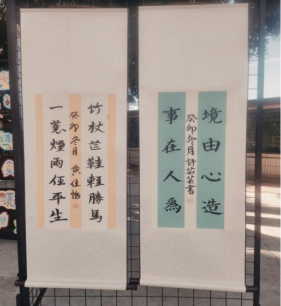 境由心造
事在人為
癸卯冬月
竹杖芒鞋輕勝馬
一蓑煙雨任平生
癸卯冬月 黃佳怡